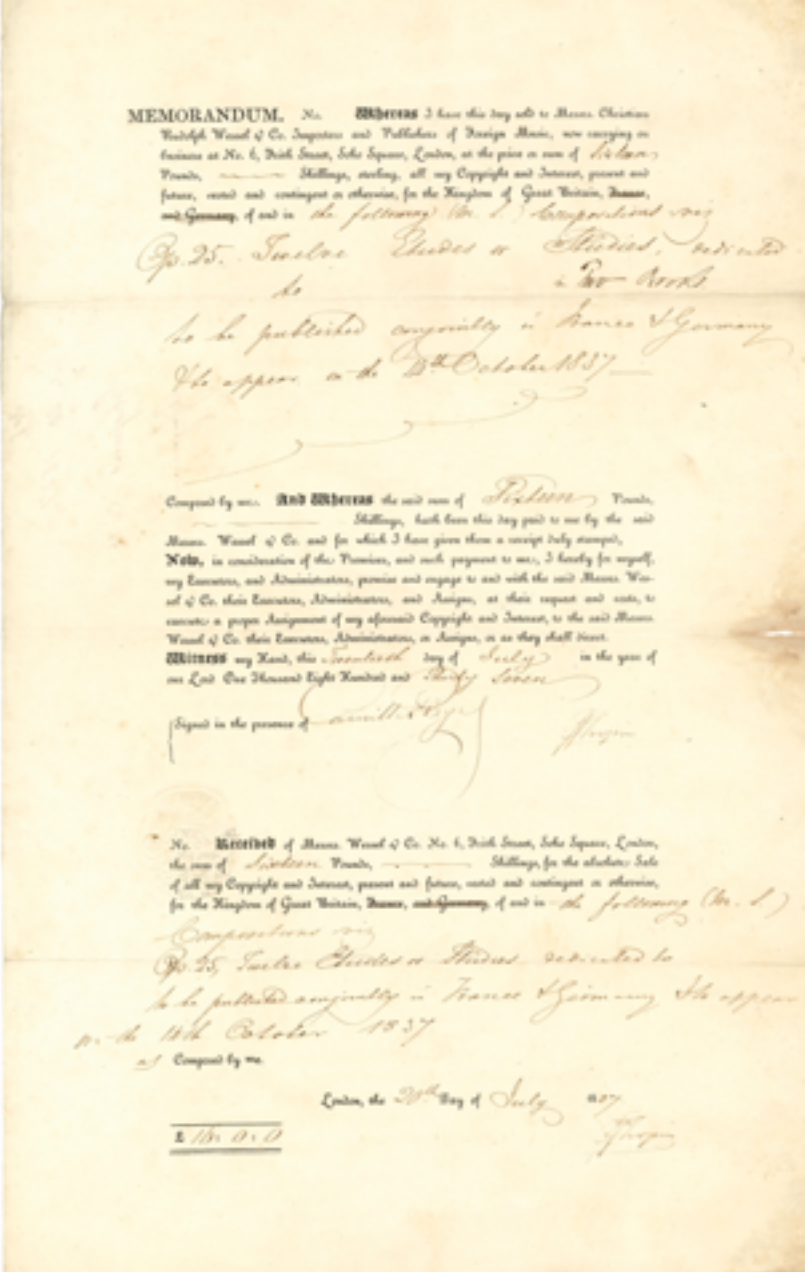 MEMORANDUM. No. Whereas I have this day sold to Messrs. Christian
Rudolph Wessel & Co. Importers and Publishers of Foreign Music, now carrying on
business at No. 6, Frith Street, Soho Square, London, at the price or sum of Sixteen
Pounds, Shillings, sterling, all my Copyright and Interest, present and
future, vested and contingent or otherwise, for the Kingdom of Great Britain, France,
and Germany, of and in the following (M. S.) Compositions viz
Op. 25. Twelve Etudes or Studies, dedicated
to in Two Books
to be published conjointly in France & Germany
& to appear on the October 1837
Composed by me. And Whereas the said sum of Sixteen Pounds,
Shillings, hath been this day paid to me by the said
Messrs. Wessel & Co. and for which I have given them a receipt duly stamped,
Now, in consideration of the Premises, and such payment to me, I hereby for myself,
my Executors, and Administrators, promise and engage to and with the said Messrs. Wes-
sel & Co. their Executors, Administrators, and Assigns, at their request and costs, to
execute a proper Assignment of my aforesaid Copyright and Interest, to the said Messrs.
Wessel & Co. their Executors, Administrators, or Assigns, or as they shall direct.
Witness my Hand, this Twentieth day of July in the year of
our Lord One Thousand Eight Hundred and Thirty Seven
Signed in the presence of Camille Pleyel
FChopin
No. Received of Messrs. Wessel & Co. No. 6, Frith Street, Soho Square, London,
the sum of Sixteen Pounds, Shillings, for the absolute Sale
of all my Copyright and Interest, present and future, vested and contingent or otherwise,
for the Kingdom of Great Britain, France, and Germany, of and in the following (M. S.)
Compositions viz
Op. 25, Twelve Etudes or Studies dedicated to
to be published conjointly in France & Germany & to appear
on the October 1837
as Composed by me.
London, the 20th Day of July 1837
£ 16. 0. 0 Chopin